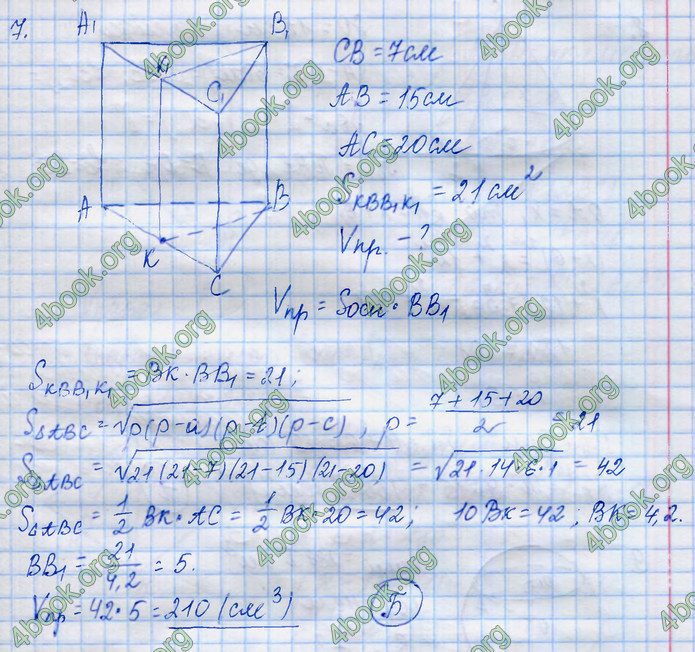 7.
A₁ B₁
K₁
C₁
A B
K
C
CB = 7см
AB = 15см
AC = 20см
S_KBB₁K₁ = 21 см²
Vпр. - ?
Vпр = Sосн · BB₁
S_KBB₁K₁ = BK · BB₁ = 21;
S△ABC = √p(p-a)(p-b)(p-c), p = (7+15+20)/2 = 21
S△ABC = √21(21-7)(21-15)(21-20) = √21·14·6·1 = 42
S△ABC = 1/2 BK · AC = 1/2 BK · 20 = 42; 10BK = 42; BK = 4,2.
BB₁ = 21/4,2 = 5.
Vпр = 42·5 = 210 (см³) Б
4book.org